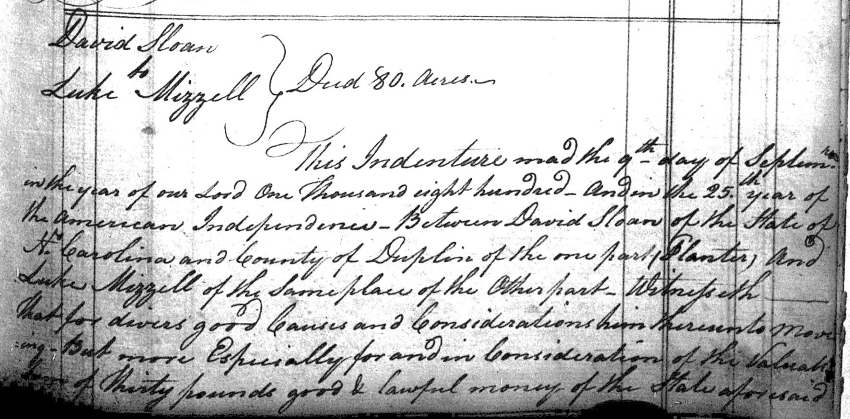 David Sloan
to
Luke Mizzell } Deed 80. Acres.~
This Indenture mad the 9th day of Septemr.
in the year of our Lord One Thousand eight hundred - And in the 25th year of
the American Independence - Between David Sloan of the State of
No. Carolina and County of Duplin of the one part, (Planter) And
Luke Mizzell of the Same place of the Other part - Witnesseth
that for divers good Causes and Considerations him thereunto move
=ing - But more Especially for and in Consideration of the Valuable
of thirty pounds good & lawful money of the State aforesaid